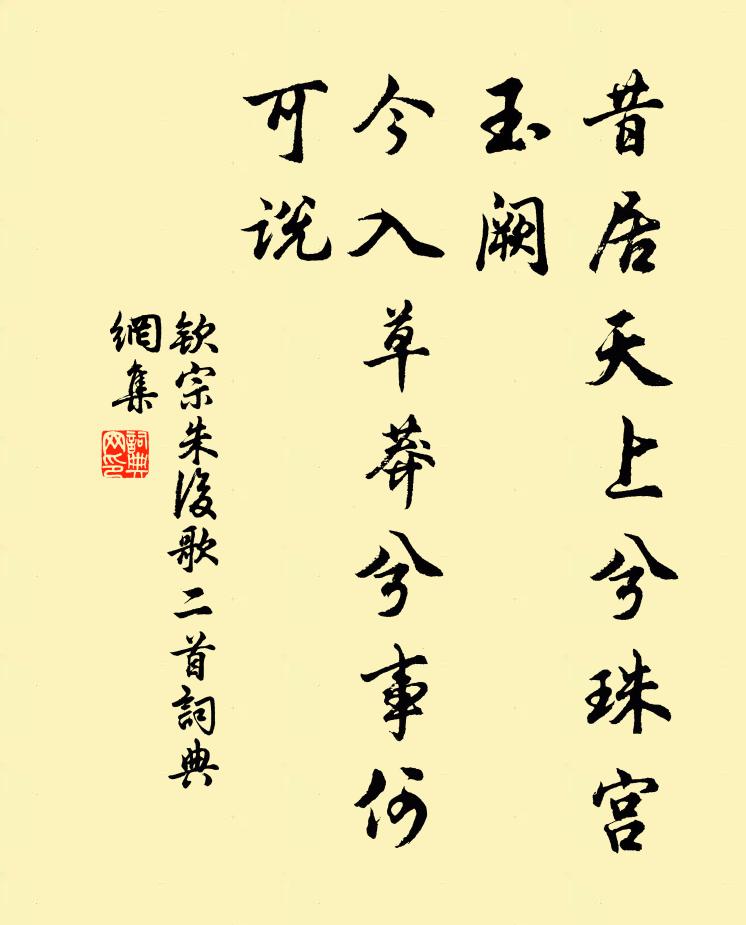 昔居天上兮珠宫
玉阙
今入草莽兮事何
可说
钦宗朱後歌二首詞典
網集
詞典
网印